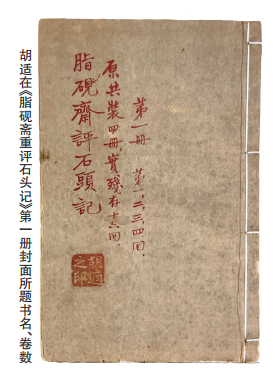 第一册　第一、二、三、四回、
原共裝四册，實殘存十六回、
脂硯齋評石頭記
胡適
之印
胡适在《脂砚斋重评石头记》第一册封面所题书名、卷数